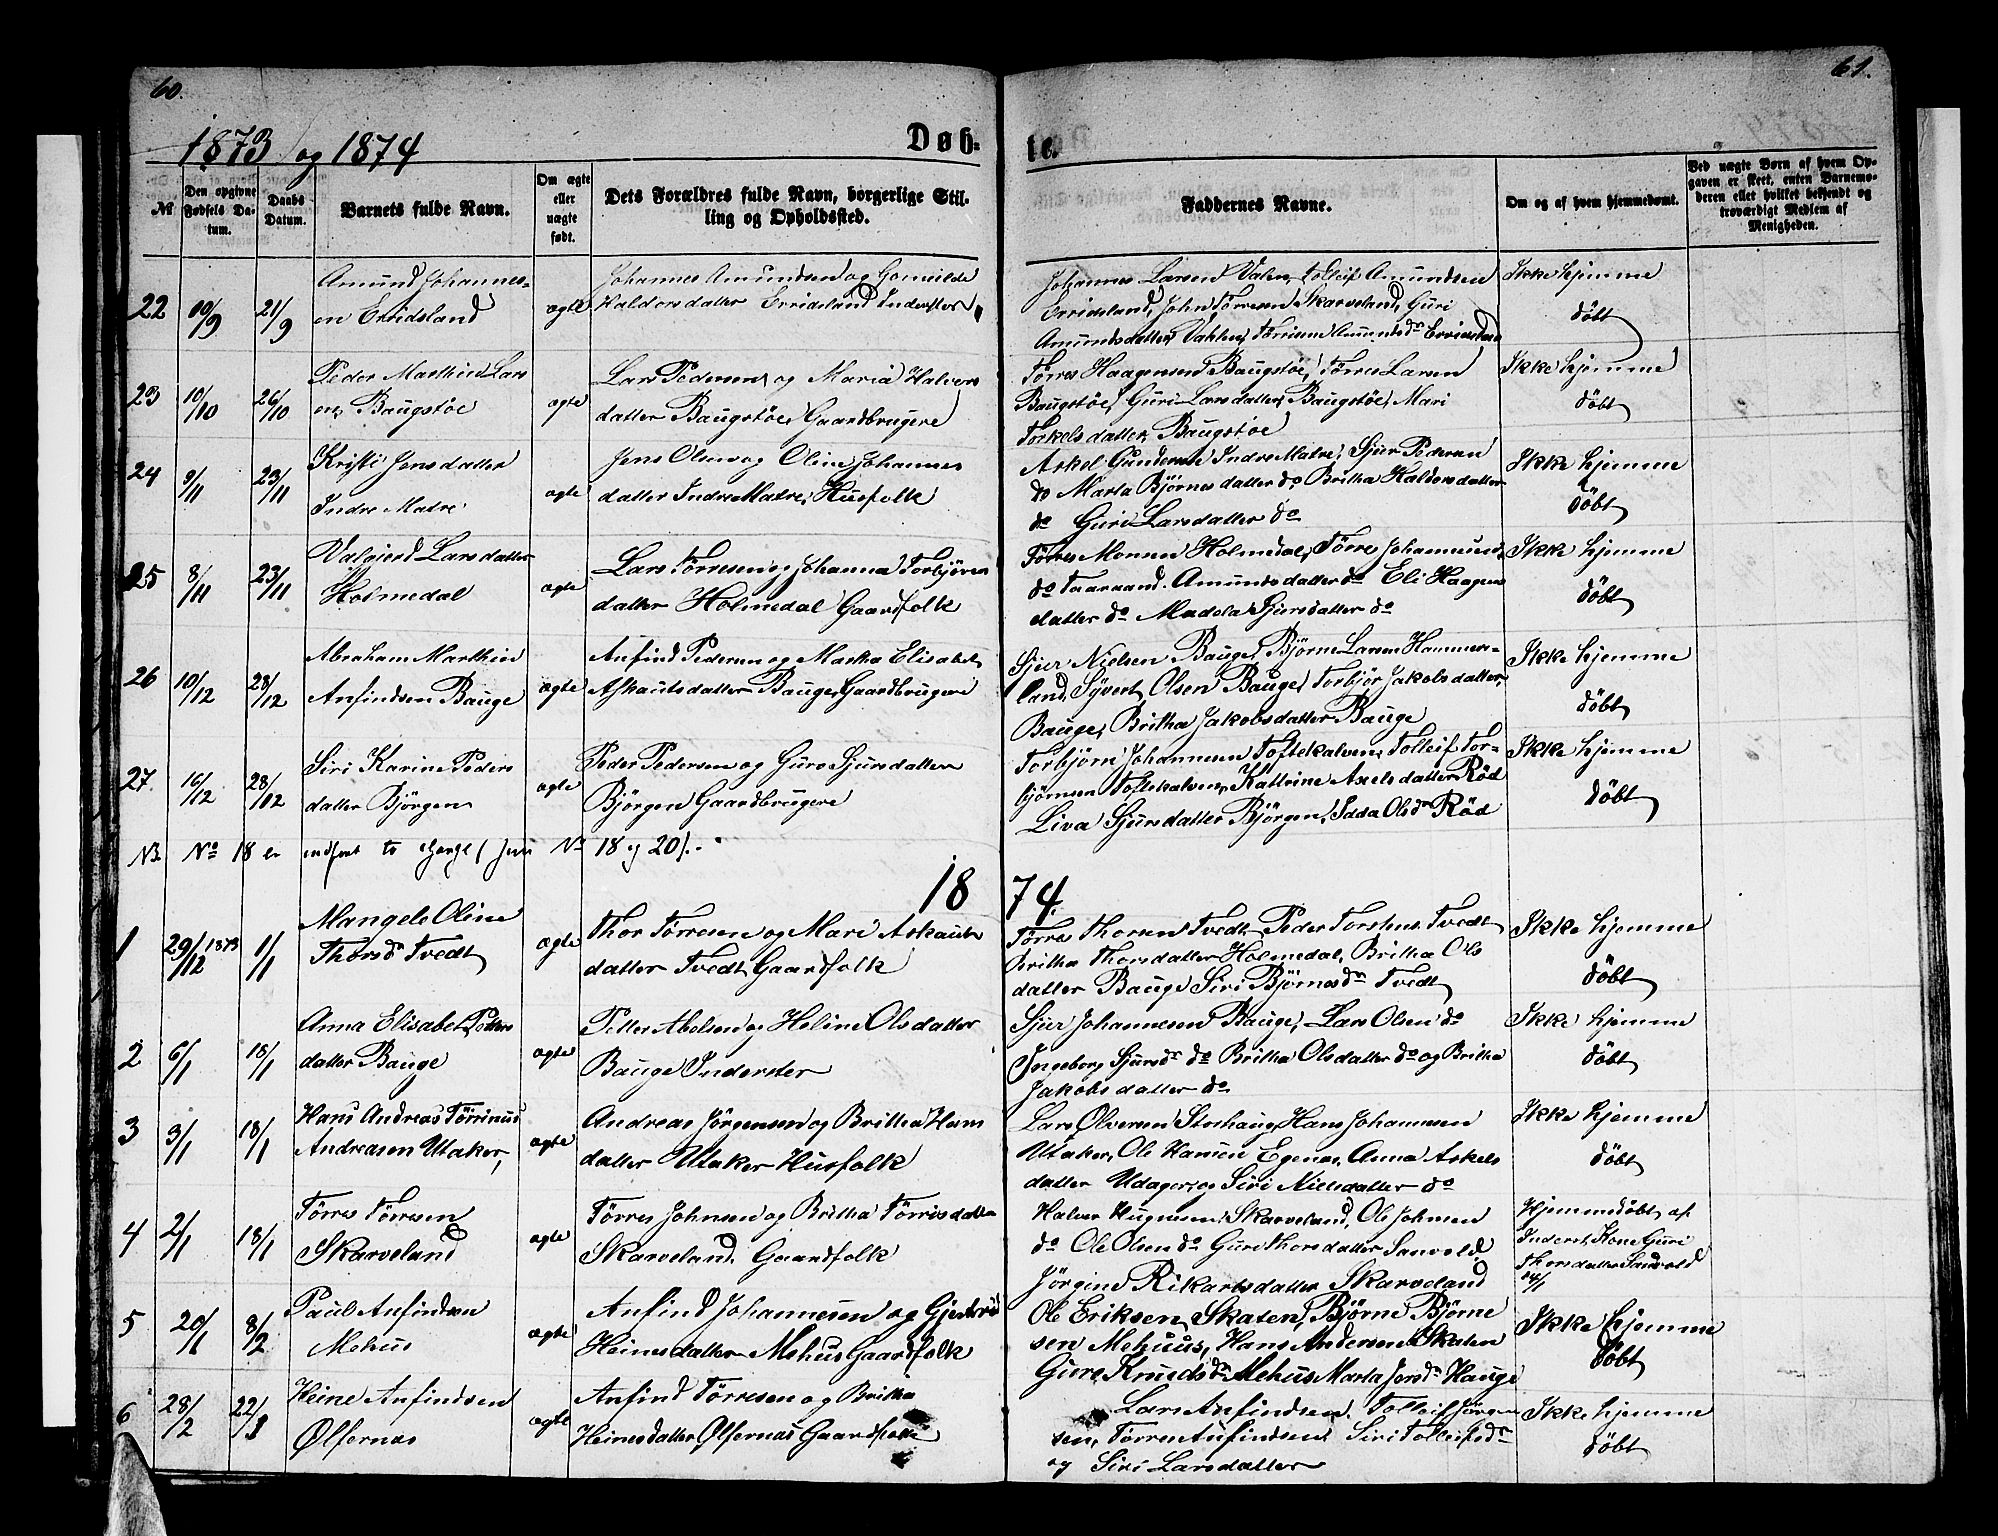 60.
61.
1873 og 1874
Døb-
te.
№
Den opgivne Fødsels Da-tum.
Daabs Datum.
Barnets fulde Navn.
Om ægte eller uægte født.
Dets Forældres fulde Navn, borgerlige Stil-
ling og Opholdssted.
Faddernes Navne.
Om og af hvem hjemmedømt.
Ved uægte Børn af hvem Op-
gaven er skeet, enten Barnemo-
deren eller hvilket bekjendt og
troværdigt Medlem af
Menigheden.
22 10/9 21/9
Amund Johannes-
en Erridsland
ægte
Johannes Amundsen og Gomilde
Haldorsdatter Erridsland Inderster
Johannes Larsen Valen, Tolleif Amundsen
Erridsland, John Tørresen Skarveland, Guri
Amundsdatter Vahlen, Amundsdr Erridsland
Ikke hjemme
døbt
23 10/10 26/10
Peder Mathin Lars
en Baugstøe
ægte
Lars Pedersen og Maria Halvors
datter Baugstøe, Gaardbrugere
Tørres Haagensen Baugstøe, Tørres Larsen
Baugstøe, Guri Larsdatter, Baugstøe, Mari
Torkelsdatter, Baugstøe
Ikke hjemme
døbt
24 9/11 23/11
Kristi Jensdatter
Indre Matre
ægte
Jens Olsen og Oline Johannes
datter Indre Matre, Husfolk
Askel Gundersen Indre Matre, Sjur Pedersen
do Marta Bjørnesdatter do, Britha Haldorsdatter
do Guri Larsdatter do
Ikke hjemme
døbt
25 8/11 23/11
Valgjerd Larsdatter
Holmedal
ægte
Lars Tørresen og Johanna Torbjørns
datter Holmedal Gaardfolk
Tørres Monsen Holmedal, Tørres Johannesen,
do Taaraand. Amundsdatter do Eli Haagens
datter do Madela Sjursdatter do
Ikke hjemme
døbt
26 10/12 28/12
Abraham Marthin
Anfindsen Bauge
ægte
Anfind Pedersen og Martha Elisabet
Askautsdatter Bauge, Gaardbrugere
Sjur Nielsen Bauge, Bjørne Larsen Hammers-
land, Syvert Olsen Bauge, Torbjør Jakobsdatter,
Bauge, Britha Jakobsdatter Bauge
Ikke hjemme
døbt
27 16/12 28/12
Siri Karine Peders
datter Bjørgen
ægte
Peder Pedersen og Guro Sjursdatter
Bjørgen Gaardbrugere
Torbjørn Johannesen Toftekalven, Tolleif Tor-
bjørnsen Toftekalven, Kathrine Axelsdatter Rød
Liva Sjursdatter Bjørgen, Idda Olsdr Rød
Ikke hjemme
døbt
NB No 18 er indført to Gange (sm No 18 og 20).
1874.
1 29/12 1873 1/1
Mangele Oline
Thorsdr Tvedt
ægte
Thor Tørresen og Mari Askauts
datter Tvedt Gaardfolk
Tørres Thorsen Tvedt, Peder Torstens. Tvedt
Britha Thorsdatter Holmedal, Britha Ols
datter Bauge Siri Bjørnesdr Tvedt
Ikke hjemme
døbt
2 6/1 18/1
Anna Elisabet Petters
datter Bauge
ægte
Petter Abelsen og Heline Olsdatter
Bauge Inderster
Sjur Johannesen Bauge, Lars Olsen do
Ingeborg Sjursdr do Britha Olsdatter do og Britha
Jakobsdatter do
Ikke hjemme
døbt
3 3/1 18/1
Hans Andreas Tørrinus
Andreasen Utaker,
ægte
Andreas Jørgensen og Britha Hans
datter Utaker Husfolk
Lars Ølversen Storhaug, Hans Johannesen
Utaker, Ole Hansen Egenas, Anna Askels
datter Udager, og Siri Nielsdatter do
Ikke hjemme
døbt
4 2/1 18/1
Tørres Tørresen
Skarveland
ægte
Tørres Johnsen og Britha Tørrisdatter
Skarveland. Gaardfolk
Halvor Skarveland, Ole Johnsen
do Ole Olsen do Guri Thorsdatter Sanvold
Jørgine Rikartsdatter Skarveland
Hjemmedøbt af
Inderst. Kone Guri
Thorsdatter Sandvold
5 20/1 8/2
Paul Anfindsen
Mehus
ægte
Anfind Johannesen og Gjertrud
Heinesdatter Mehus Gaardfolk
Ole Eriksen, Skaten, Bjørne Bjørne
sen Mehuus, Hans Andersen Skaten
Guro Knudsdr Mehus Marta Jensdr Hauge
Ikke hjemme
døbt
6 28/2 22/3
Heine Anfindsen
Ølfernas
ægte
Anfind Tørresen og Britha
Heinesdatter Ølfernas Gaardfolk
Lars Anfindsen. Tolleif Jørgen
sen, Tørres Anfindsen, Siri Tolleifsdr
og Siri Larsdatter
Ikke hjemme
døbt